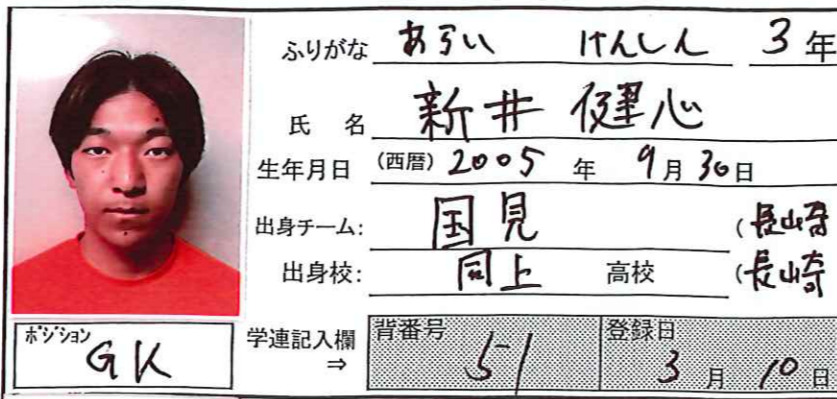 ふりがな あらい けんしん 3年
氏名 新井 健心
生年月日 (西暦) 2005年 9月30日
出身チーム: 国見 (長崎
出身校: 同上 高校 (長崎
ポジション GK
学連記入欄 ⇒ 背番号 51 登録日 3月10日